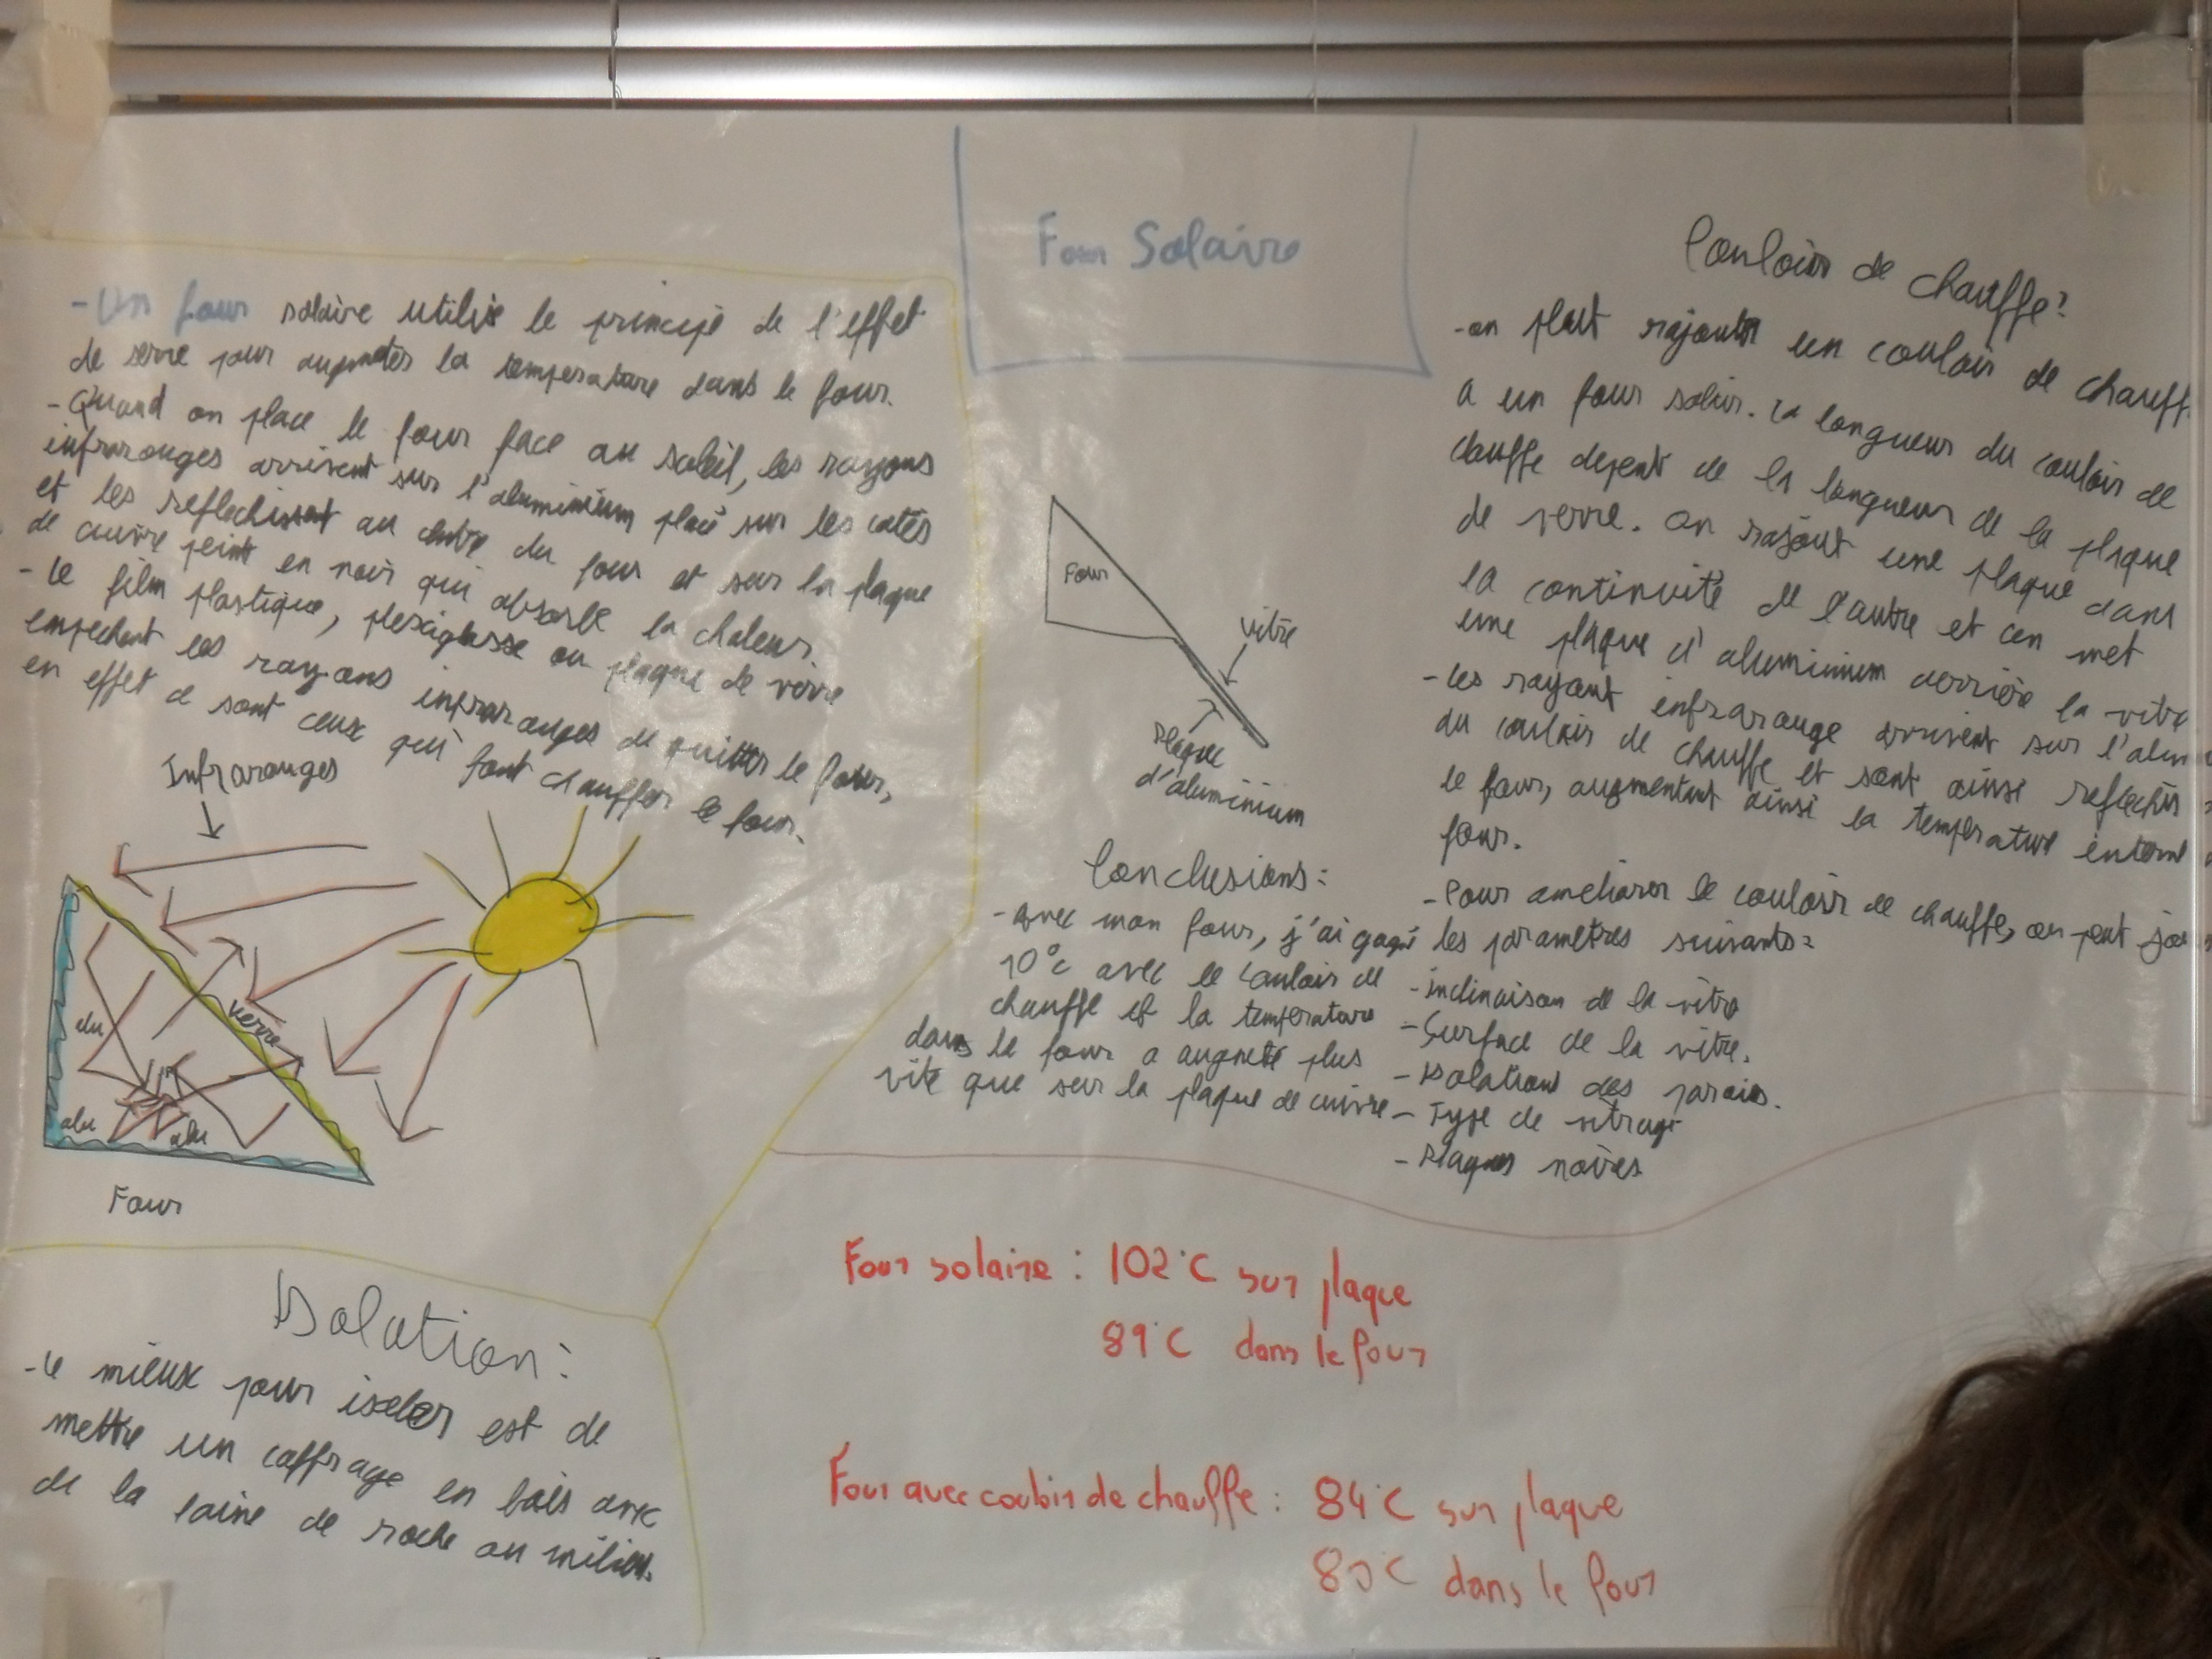 Four Solaire
- Un four solaire utilise le principe de l'effet
de serre pour augmeter la temperature dans le four.
- Quand on place le four face au soleil, les rayons
infrarouges arrivent sur l'aluminium placé sur les cotés
et les reflechissent au centre du four et sur la plaque
de cuivre peint en noir qui absorbe la chaleur.
- le film plastique, plexiglasse ou plaque de verre
empechent les rayons infrarouges de quitter le four,
en effet ce sont ceux qui font chauffer le four.
Infrarouges
verre
alu
alu
alu
Four
Isolation:
- le mieux pour isoler est de
mettre un coffrage en bois avec
de la laine de roche au milieu.
Four
vitre
Plaque
d'aluminium
Conclusions:
- avec mon four, j'ai gagné
10°c avec le couloir de
chauffe et la temperature
dans le four a augmeté plus
vite que sur la plaque de cuivre
Couloir de chauffe:
- on peut rajouter un couloir de chauff
a un four solair. la longueur du couloir de
chauffe depent de la longueur de la plaque
de verre. on rajout une plaque dans
la continuité de l'autre et on met
une plaque d'aluminium derrière la vitre
- les rayont infrarouge arrivent sur l'alum
du couloir de chauffe et sont ainsi reflechis
le four, augmentant ainsi la temperature interne
four.
- Pour ameliorer le couloir de chauffe, on peut jou
les parametres suivants:
- inclinaison de la vitre
- Surface de la vitre.
- Isolations des parois.
- Type de vitrage
- Plaques noires
Four solaire : 102°C sur plaque
89°C dans le four
Four avec couloir de chauffe : 84°C sur plaque
80°C dans le four